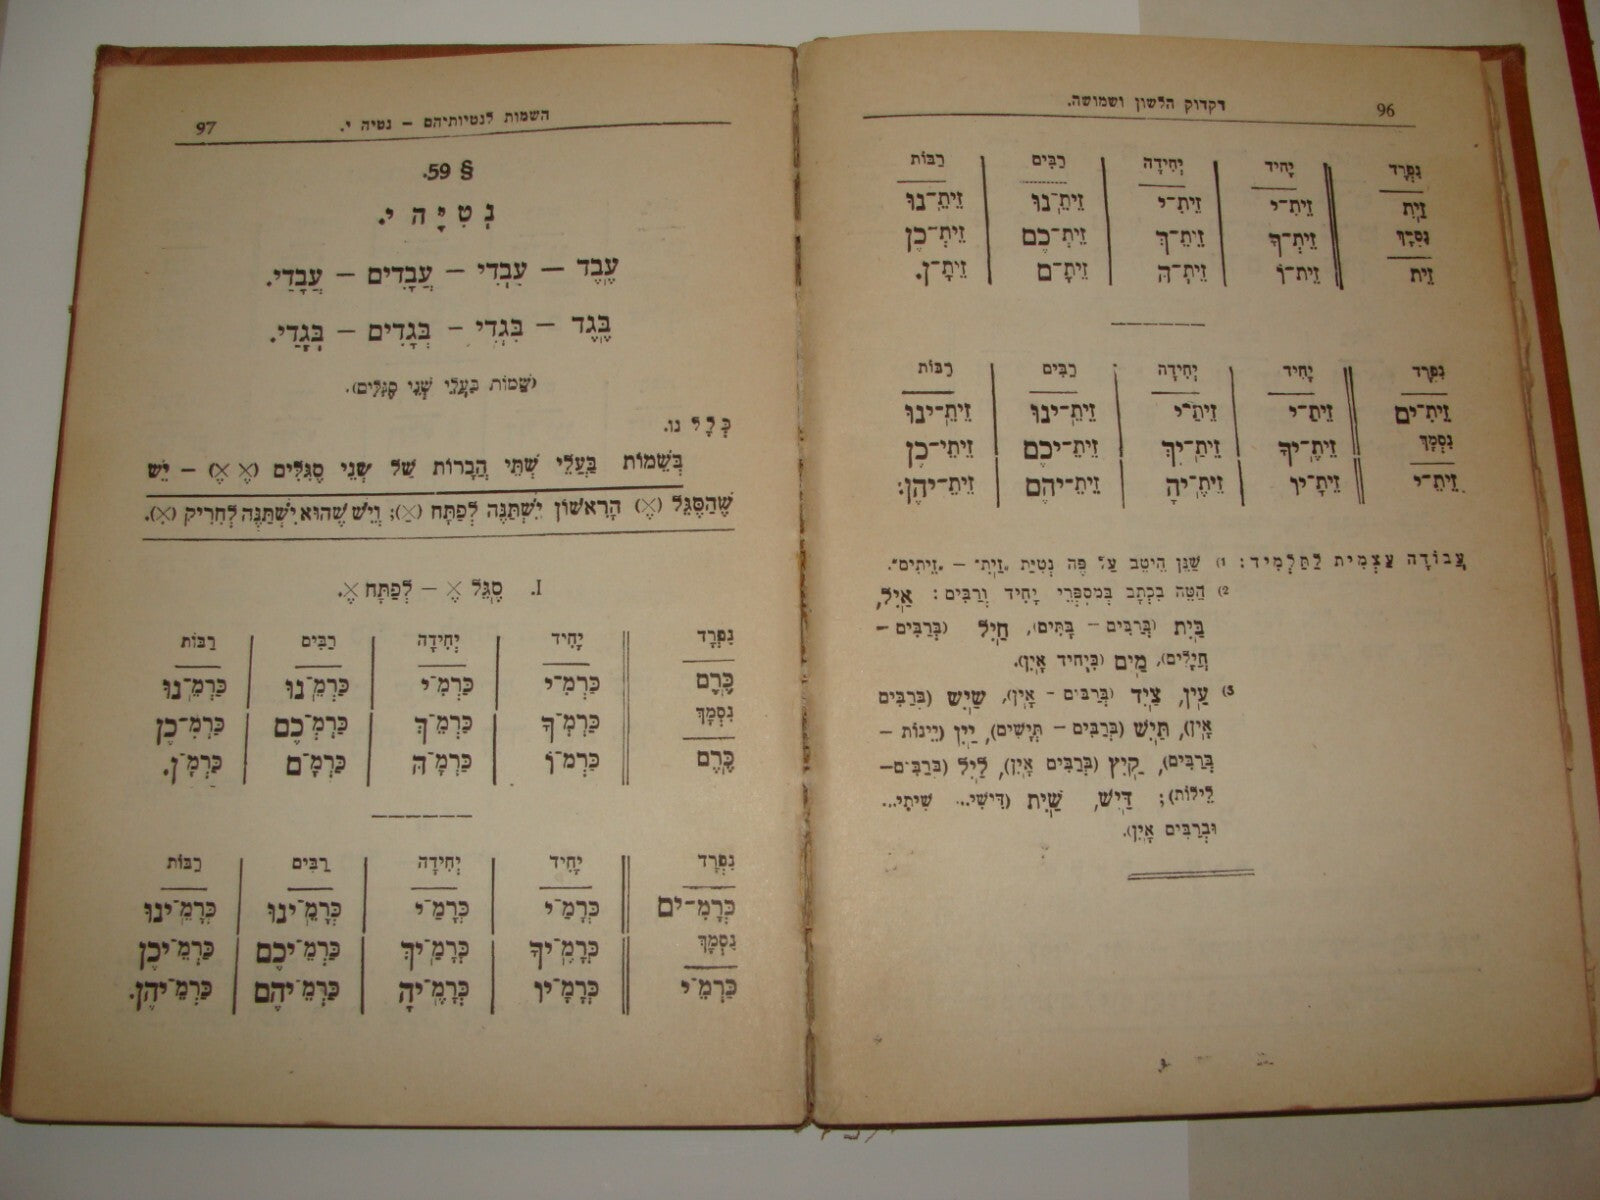 96 דקדוק הלשון ושמושה.
נִפְרָד יָחִיד יְחִידָה רַבִּים רַבּוֹת
זַיִת זֵיתִ־י זֵיתִ־י זֵיתֵ־נוּ זֵיתֵ־נוּ
נִסְמָךְ זֵיתְ־ךָ זֵיתֵ־ךְ זֵיתְ־כֶם זֵיתְ־כֶן
זֵית זֵית־וֹ זֵיתָ־הּ זֵיתָ־ם זֵיתָ־ן.
נִפְרָד יָחִיד יְחִידָה רַבִּים רַבּוֹת
זֵיתִ־ים זֵיתַ־י זֵיתַ־י זֵיתֵ־ינוּ זֵיתֵ־ינוּ
נִסְמָךְ זֵיתֶ־יךָ זֵיתַ־יִךְ זֵיתֵ־יכֶם זֵיתֵי־כֶן
זֵיתֵ־י זֵיתָ־יו זֵיתֶ־יהָ זֵיתֵ־יהֶם זֵיתֵ־יהֶן.
עֲבוֹדָה עַצְמִית לַתַּלְמִיד: 1) שַׁנֵּן הֵיטֵב עַל פֶּה נְטִיַּת „זַיִת" – „זֵיתִים".
2) הַטֵּה בִכְתָב בְּמִסְפְּרֵי יָחִיד וְרַבִּים: אַיִל,
בַּיִת (בְּרַבִּים – בָּתִּים), חַיִל (בְּרַבִּים –
חֲיָלִים), מַיִם (בְּיָחִיד אָיִן).
3) עַיִן, צַיִד (בְּרַבִּים – אָיִן), שַׁיִשׁ (בְּרַבִּים
אָיִן), תַּיִשׁ (בְּרַבִּים – תְּיָשִׁים), יַיִן (יֵינוֹת –
בְּרַבִּים), קַיִץ (בְּרַבִּים אָיִן), לַיִל (בְּרַבִּים–
לֵילוֹת); דַּיִשׁ, שַׁיִת (דִּישִׁי... שִׁיתִי...
וּבְרַבִּים אָיִן).
השמות לנטיותיהם – נטיה י. 97
§ 59.
נְטִיָּה י.
עֶבֶד – עַבְדִּי – עֲבָדִים – עֲבָדַי.
בֶּגֶד – בִּגְדִי – בְּגָדִים – בְּגָדַי.
(שֵׁמוֹת בַּעֲלֵי שְׁנֵי סֶגּלִים).
כְּלָל נו.
בְּשֵׁמוֹת בַּעֲלֵי שְׁתֵּי הֲבָרוֹת שֶׁל שְׁנֵי סֶגּלִים (×ֶ ×ֶ) – יֵשׁ
שֶׁהַסֶּגֵּל (×ֶ) הָרִאשׁוֹן יִשְׁתַּנֶּה לְפַתָּח (×ַ); וְיֵשׁ שֶׁהוּא יִשְׁתַּנֶּה לְחִרִיק (×ִ).
I. סֶגֵּל ×ֶ – לְפַתָּח ×ַ.
נִפְרָד יָחִיד יְחִידָה רַבִּים רַבּוֹת
כֶּרֶם כַּרְמִ־י כַּרְמִ־י כַּרְמֵ־נוּ כַּרְמֵ־נוּ
נִסְמָךְ כַּרְמְ־ךָ כַּרְמֵ־ךְ כַּרְמְ־כֶם כַּרְמְ־כֶן
כֶּרֶם כַּרְמ־וֹ כַּרְמָ־הּ כַּרְמָ־ם כַּרְמָ־ן.
נִפְרָד יָחִיד יְחִידָה רַבִּים רַבּוֹת
כְּרָמִ־ים כְּרָמַ־י כְּרָמַ־י כְּרָמֵ־ינוּ כְּרָמֵ־ינוּ
נִסְמָךְ כְּרָמֶ־יךָ כְּרָמַ־יִךְ כַּרְמֵ־יכֶם כַּרְמֵ־יכֶן
כַּרְמֵ־י כְּרָמָ־יו כְּרָמֶ־יהָ כַּרְמֵ־יהֶם כַּרְמֵ־יהֶן.